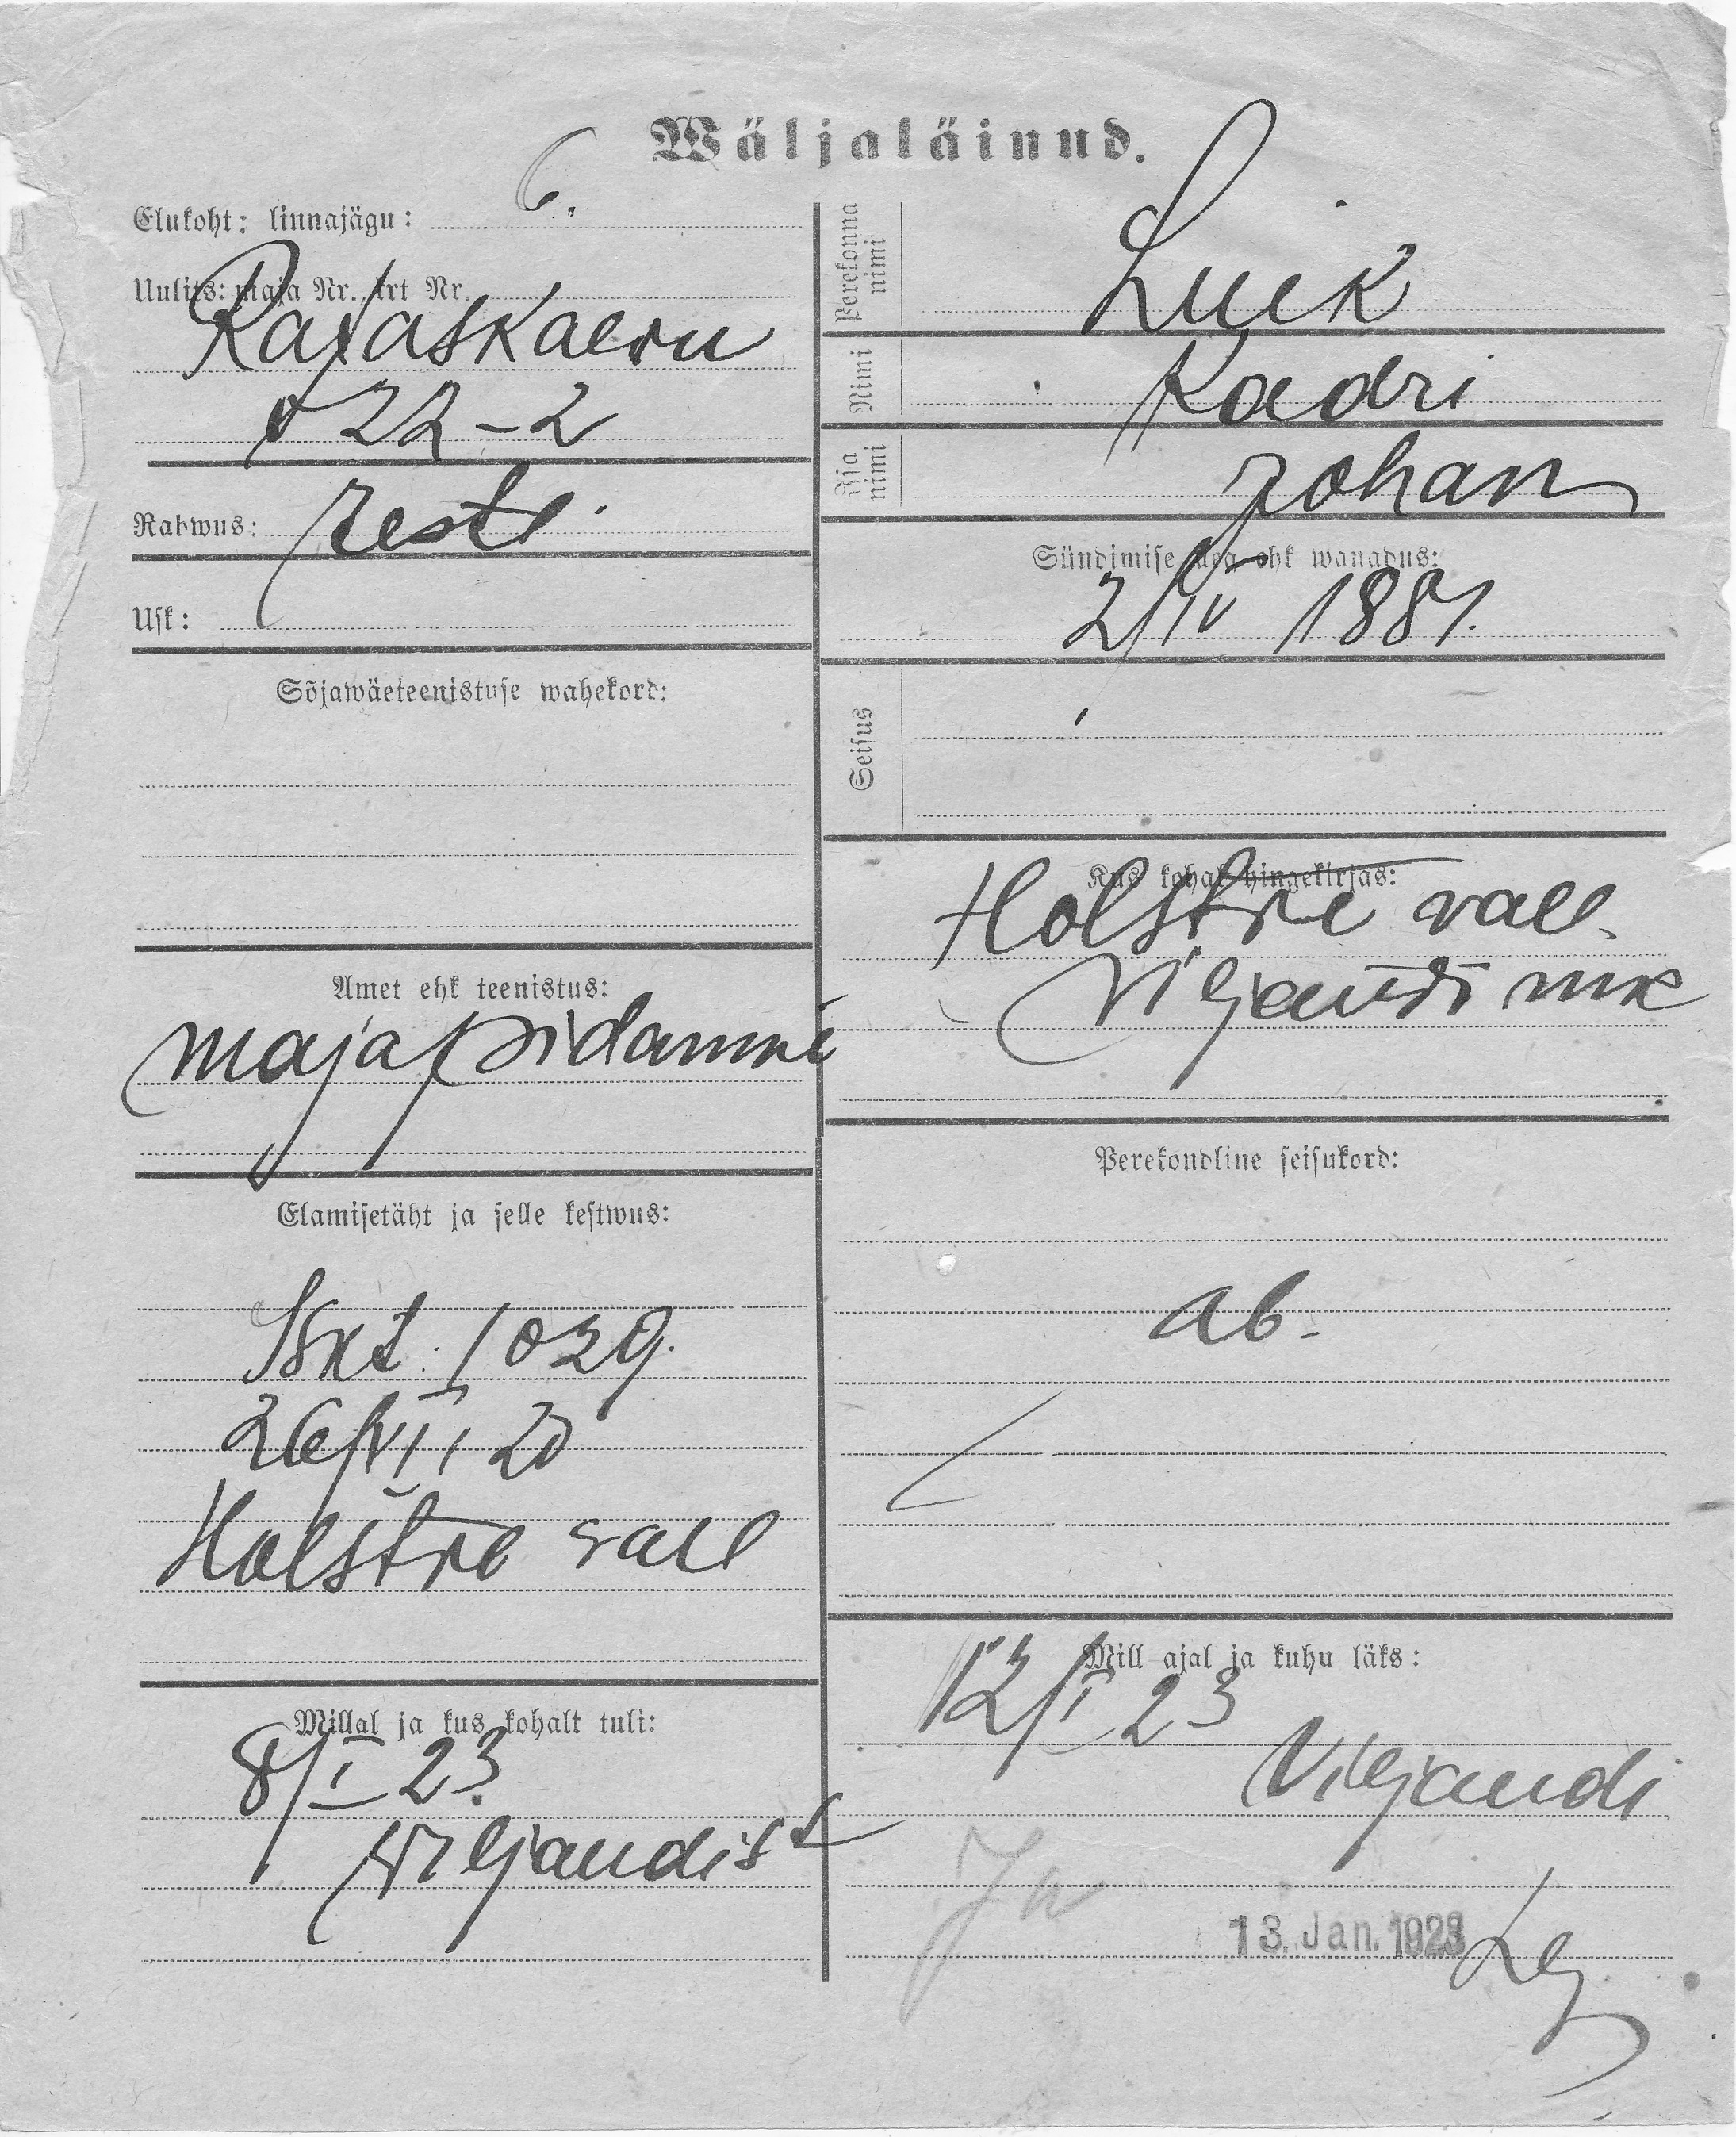 Wäljaläinud.
Elukoht: linnajägu: 6.
Uulits: maja Nr., krt Nr.
Rataskaevu
22-2
Rahwus: Eestl.
Usk:
Sõjawäeteenistuse wahekord:
Amet ehk teenistus:
majapidamine
Elamisetäht ja selle kestwus:
Iskt. 1029.
26/VII 20
Holstre vall
Millal ja kus kohalt tuli:
8/I 23
Viljandist
Perekonna nimi
Luik
Nimi
Kadri
Isa nimi
Johan
Sündimise aeg ehk wanadus:
2/IV 1881.
Seisus
Kus kohal hingekirjas:
Holstre vall.
Viljandi mk
Perekondline seisukord:
ab.
Mill ajal ja kuhu läks:
12/I 23
Viljandi
13. Jan. 1923